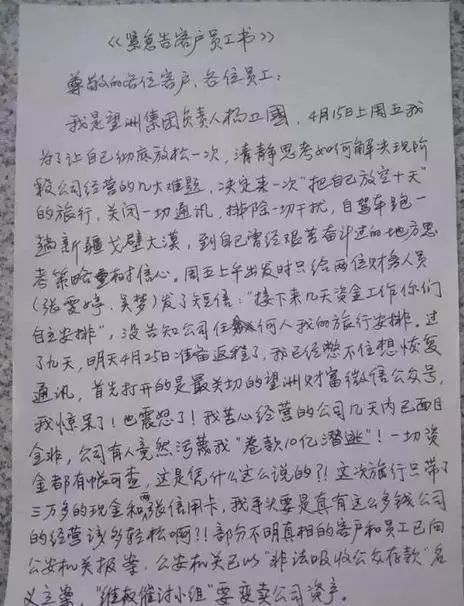 《紧急告客户员工书》
尊敬的各位客户、各位员工：
我是望洲集团负责人杨卫国，4月15日上周五我
为了让自己彻底放松一次，清静思考如何解决现阶
段公司经营的几大难题，决定来一次“把自己放空十天”
的旅行，关闭一切通讯，排除一切干扰，自驾车跑一
趟新疆戈壁大漠，到自己曾经艰苦奋斗过的地方思
考策略重树信心。周五上午出发时只给两位财务人员
(张雯婷、吴梦)发了短信：“接下来几天资金工作你们
自主安排”，没告知公司任何人我的旅行安排。过
了九天，明天4月25日准备返程了，我已经憋不住想恢复
通讯，首先打开的是最关切的望洲财富微信公众号，
我惊呆了！也震怒了！我苦心经营的公司几天内已面目
全非，公司有人竟然污蔑我“卷款10亿潜逃”！一切资
金都有帐可查，这是凭什么这么说的？！这次旅行只带了
三万多的现金和两张信用卡，我手头要是真有这么多钱公司
的经营该多轻松啊？！部分不明真相的客户和员工已向
公安机关报案，公安机关已以“非法吸收公众存款”名
义立案，“维权催讨小组”要变卖公司资产。